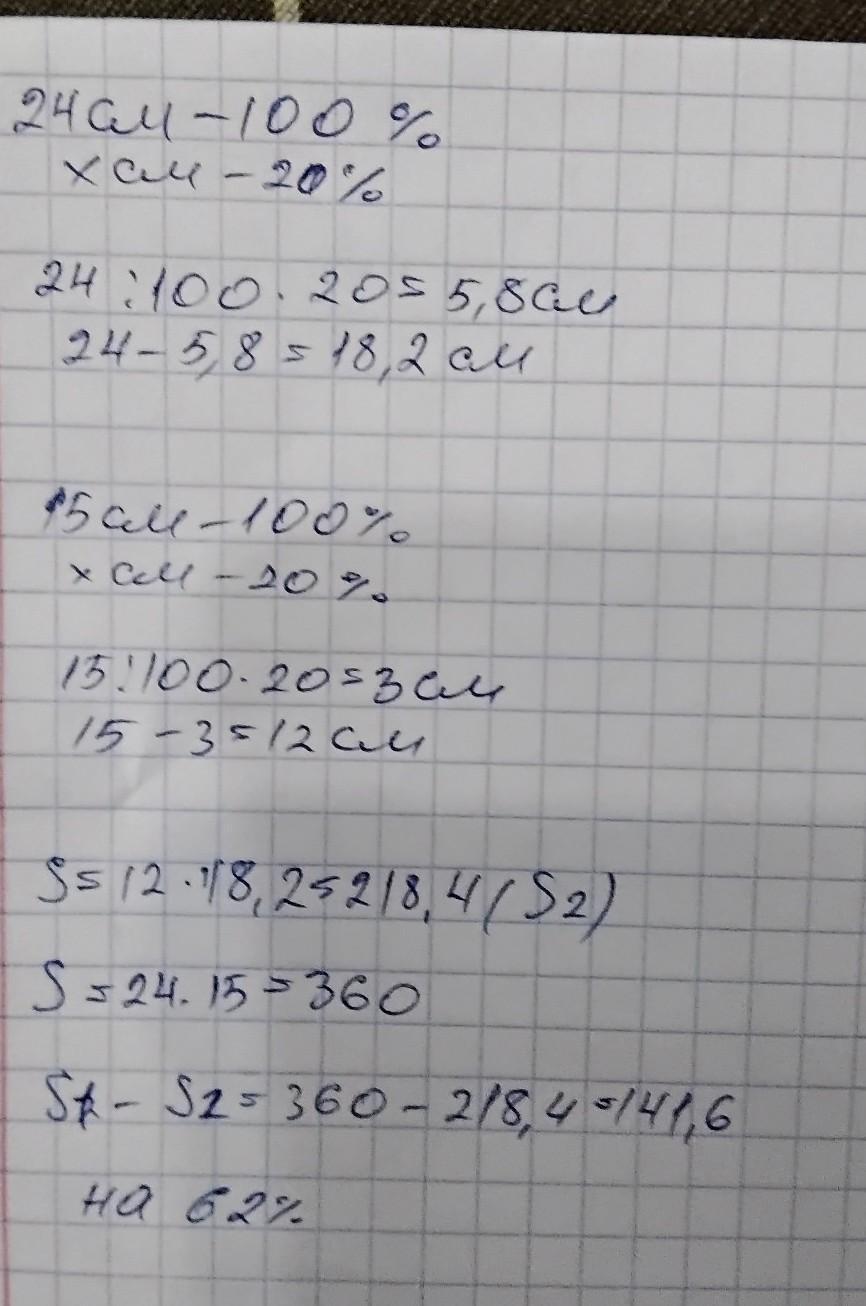 24см - 100 %
х см - 20%
24 : 100 · 20 = 5,8см
24 - 5,8 = 18,2 см
15см - 100%
х см - 20 %
15 : 100 · 20 = 3 см
15 - 3 = 12 см
S = 12 · 18,2 = 218,4 (S2)
S = 24 · 15 = 360
S1 - S2 = 360 - 218,4 = 141,6
на 62%